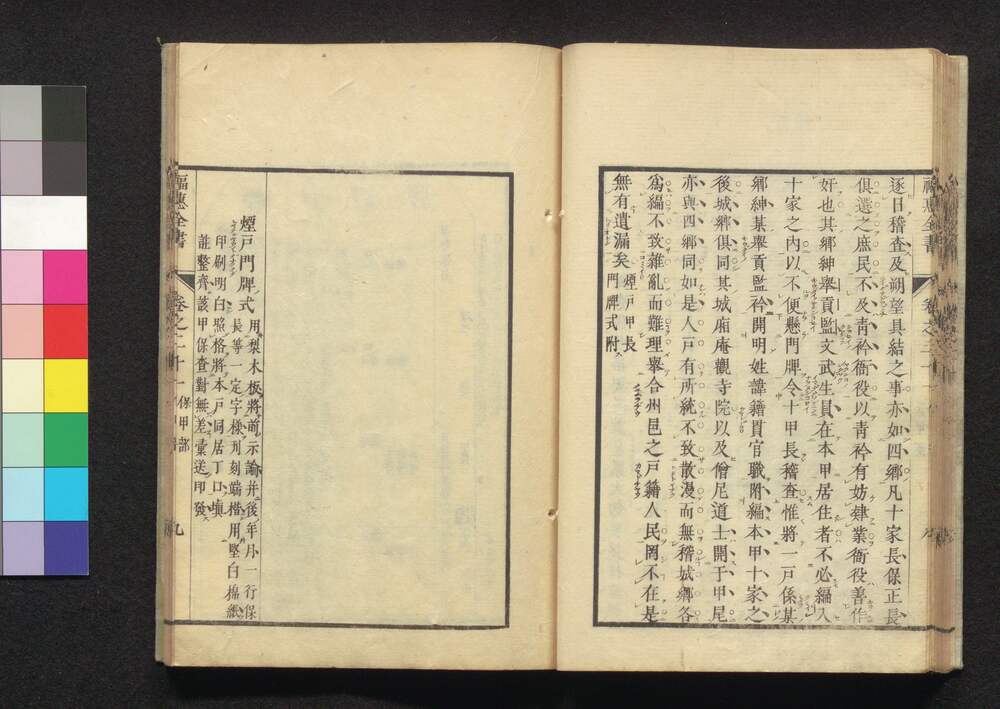 逐日稽査及朔望具結之事亦如四郷凡十家長保正長
俱選之庶民不及靑衿衙役以靑衿有妨肄業衙役善作
奸也其郷紳擧貢監文武生員在本甲居住者不必編入
十家之內以不便懸門牌令十甲長稽查惟將一戸係某
郷紳某擧貢監衿開明姓諱籍貫官職附編本甲十家之
後城鄉俱同其城廂庵觀寺院以及僧尼道士開于甲尾
亦與四郷同如是人戸有所統不致散漫而無稽城鄕各
爲編不致雜亂而難理擧合州邑之戸籍人民罔不在是
無有遺漏矣煙戸甲長
門牌式附
煙戸門牌式用梨木板將前示諭并後年月一行保
長等一定字樣刋刻端楷用堅白棉紙
印刷明白照格將本戸同居丁口塡
註整齊該甲保查對無差彙送印發
福惠全書
卷之二十一
保甲部
九